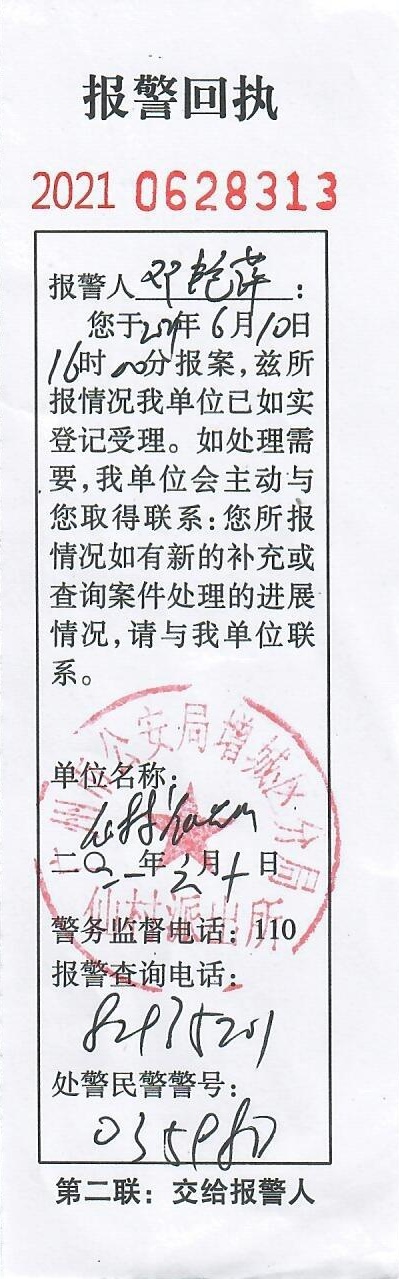 报警回执
2021 0628313
报警人邓艳萍:
您于2021年6月10日
16时00分报案,兹所
报情况我单位已如实
登记受理。如处理需
要,我单位会主动与
您取得联系:您所报
情况如有新的补充或
查询案件处理的进展
情况,请与我单位联
系。
广州市公安局增城区分局
仙村派出所
单位名称:
仙村派出所
二〇二一年六月十日
警务监督电话:110
报警查询电话:
82935201
处警民警警号:
035980
第二联:交给报警人